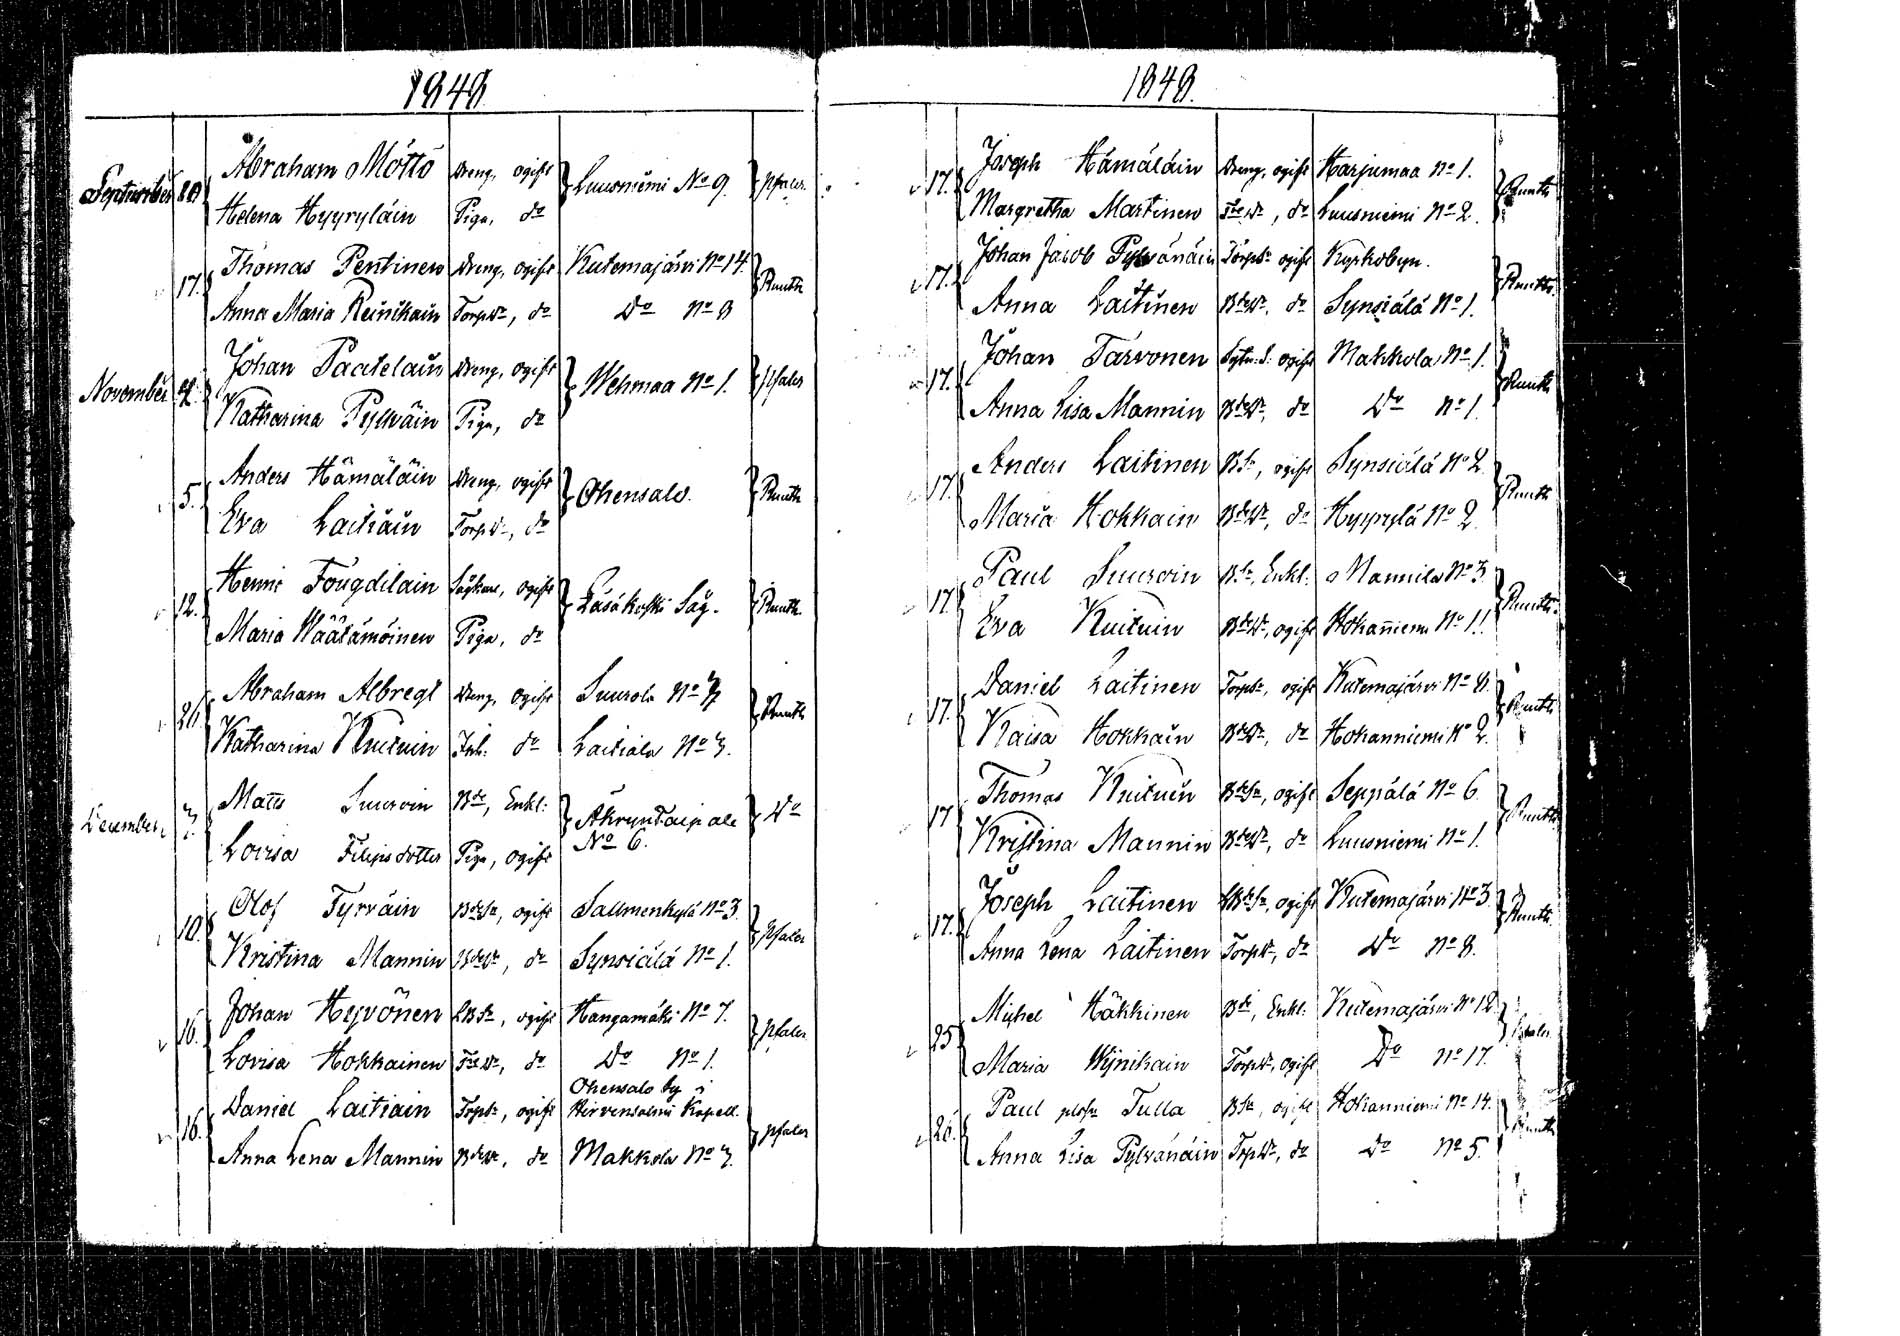 1848
September 20 Abraham Möttö Dreng, ogift Luusniemi No 9. Pfaler
Helena Hyyryläin Piga, do
17. Thomas Pentinen Dreng, ogift Kutemajärvi No 14. Ruuth
Anna Maria Reinikain TorpDr, do Do No 8
November 4. Johan Paatelain Dreng, ogift Wehmaa No 1. Pfaler
Katharina Pylwäin Piga, do
5. Anders Hämäläin Dreng, ogift Ohensalo. Ruuth
Eva Laitiäin TorpDr, do
12. Henric Fougdilain Sågkarl, ogift Läsäkoski Såg. Ruuth
Maria Wäätämöinen Piga, do
26. Abraham Albregt Dreng, ogift Suurola No 7 Ruuth
Katharina Kuituin Inh. do Laitiala No 3.
December 3. Matts Suuroin Bde, Enkl: Äkryntaipale Do
Lovisa Filipsdotter Piga, ogift No 6.
10. Olof Tyrväin BdeSn, ogift Sallmenkylä No 3. Pfaler
Kristina Mannin BdeDr, do Synsiälä No 1.
16. Johan Hyvönen LBSn, ogift Hangamäki No 7. Pfaler
Lovisa Hokkainen Do No 1.
Ohensalo by i
16. Daniel Laitiain TorpSn, ogift Hirvensalmi Kapell. Pfaler
Anna Lena Mannin BdeDr, do Makkola No 3.
1848.
17. Joseph Hämäläin Dreng, ogift Harjumaa No 1. Ruuth
Margretha Martinen do Luusniemi No 2.
17. Johan Jacob Pylvänäin TorpSn ogift Kyrkobyn. Ruuth
Anna Laitinen BdeDr, do Synsiälä No 1.
17. Johan Tarvonen ogift Makkola No 1. Ruuth
Anna Lisa Mannin BdeDr, do Do No 1.
17. Anders Laitinen BSn, ogift Synsiälä No 2. Ruuth
Maria Hokkain BdeDr, do Hyyrylä No 2.
17. Paul Suuroin BSn, Enkl: Mannila No 3. Ruuth
Eva Kuituin BdeDr, ogift Hokanniemi No 11.
17. Daniel Laitinen TorpSn, ogift Kutemajärvi No 8. Ruuth
Kaisa Hokkain BdeDr, do Hokanniemi No 2.
17 Thomas Kuituin BdeSn, ogift Seppälä No 6. Ruuth
Kristina Mannin BdeDr, do Luusniemi No 1.
17. Joseph Laitinen BdeSn, ogift Kutemajärvi No 3. Ruuth
Anna Lena Laitinen TorpDr, do Do No 8.
25 Michel Häkkinen Bde, Enkl: Kutemajärvi No 12 Pfaler
Maria Wynikain TorpDr, ogift Do No 17.
26. Paul Tulla BSn, ogift Hokanniemi No 14. Ruuth
Anna Lisa Pylvänäin TorpDr, do Do No 5.